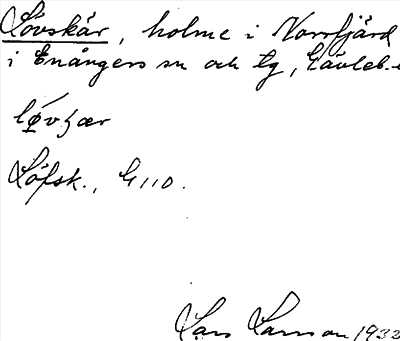 Lövskär, holme i Norrfjärd
i Enångers sn och tg, Gävleb.
lø̄́vʃær
Löfsk., G 110.
Lars Larsson 1932